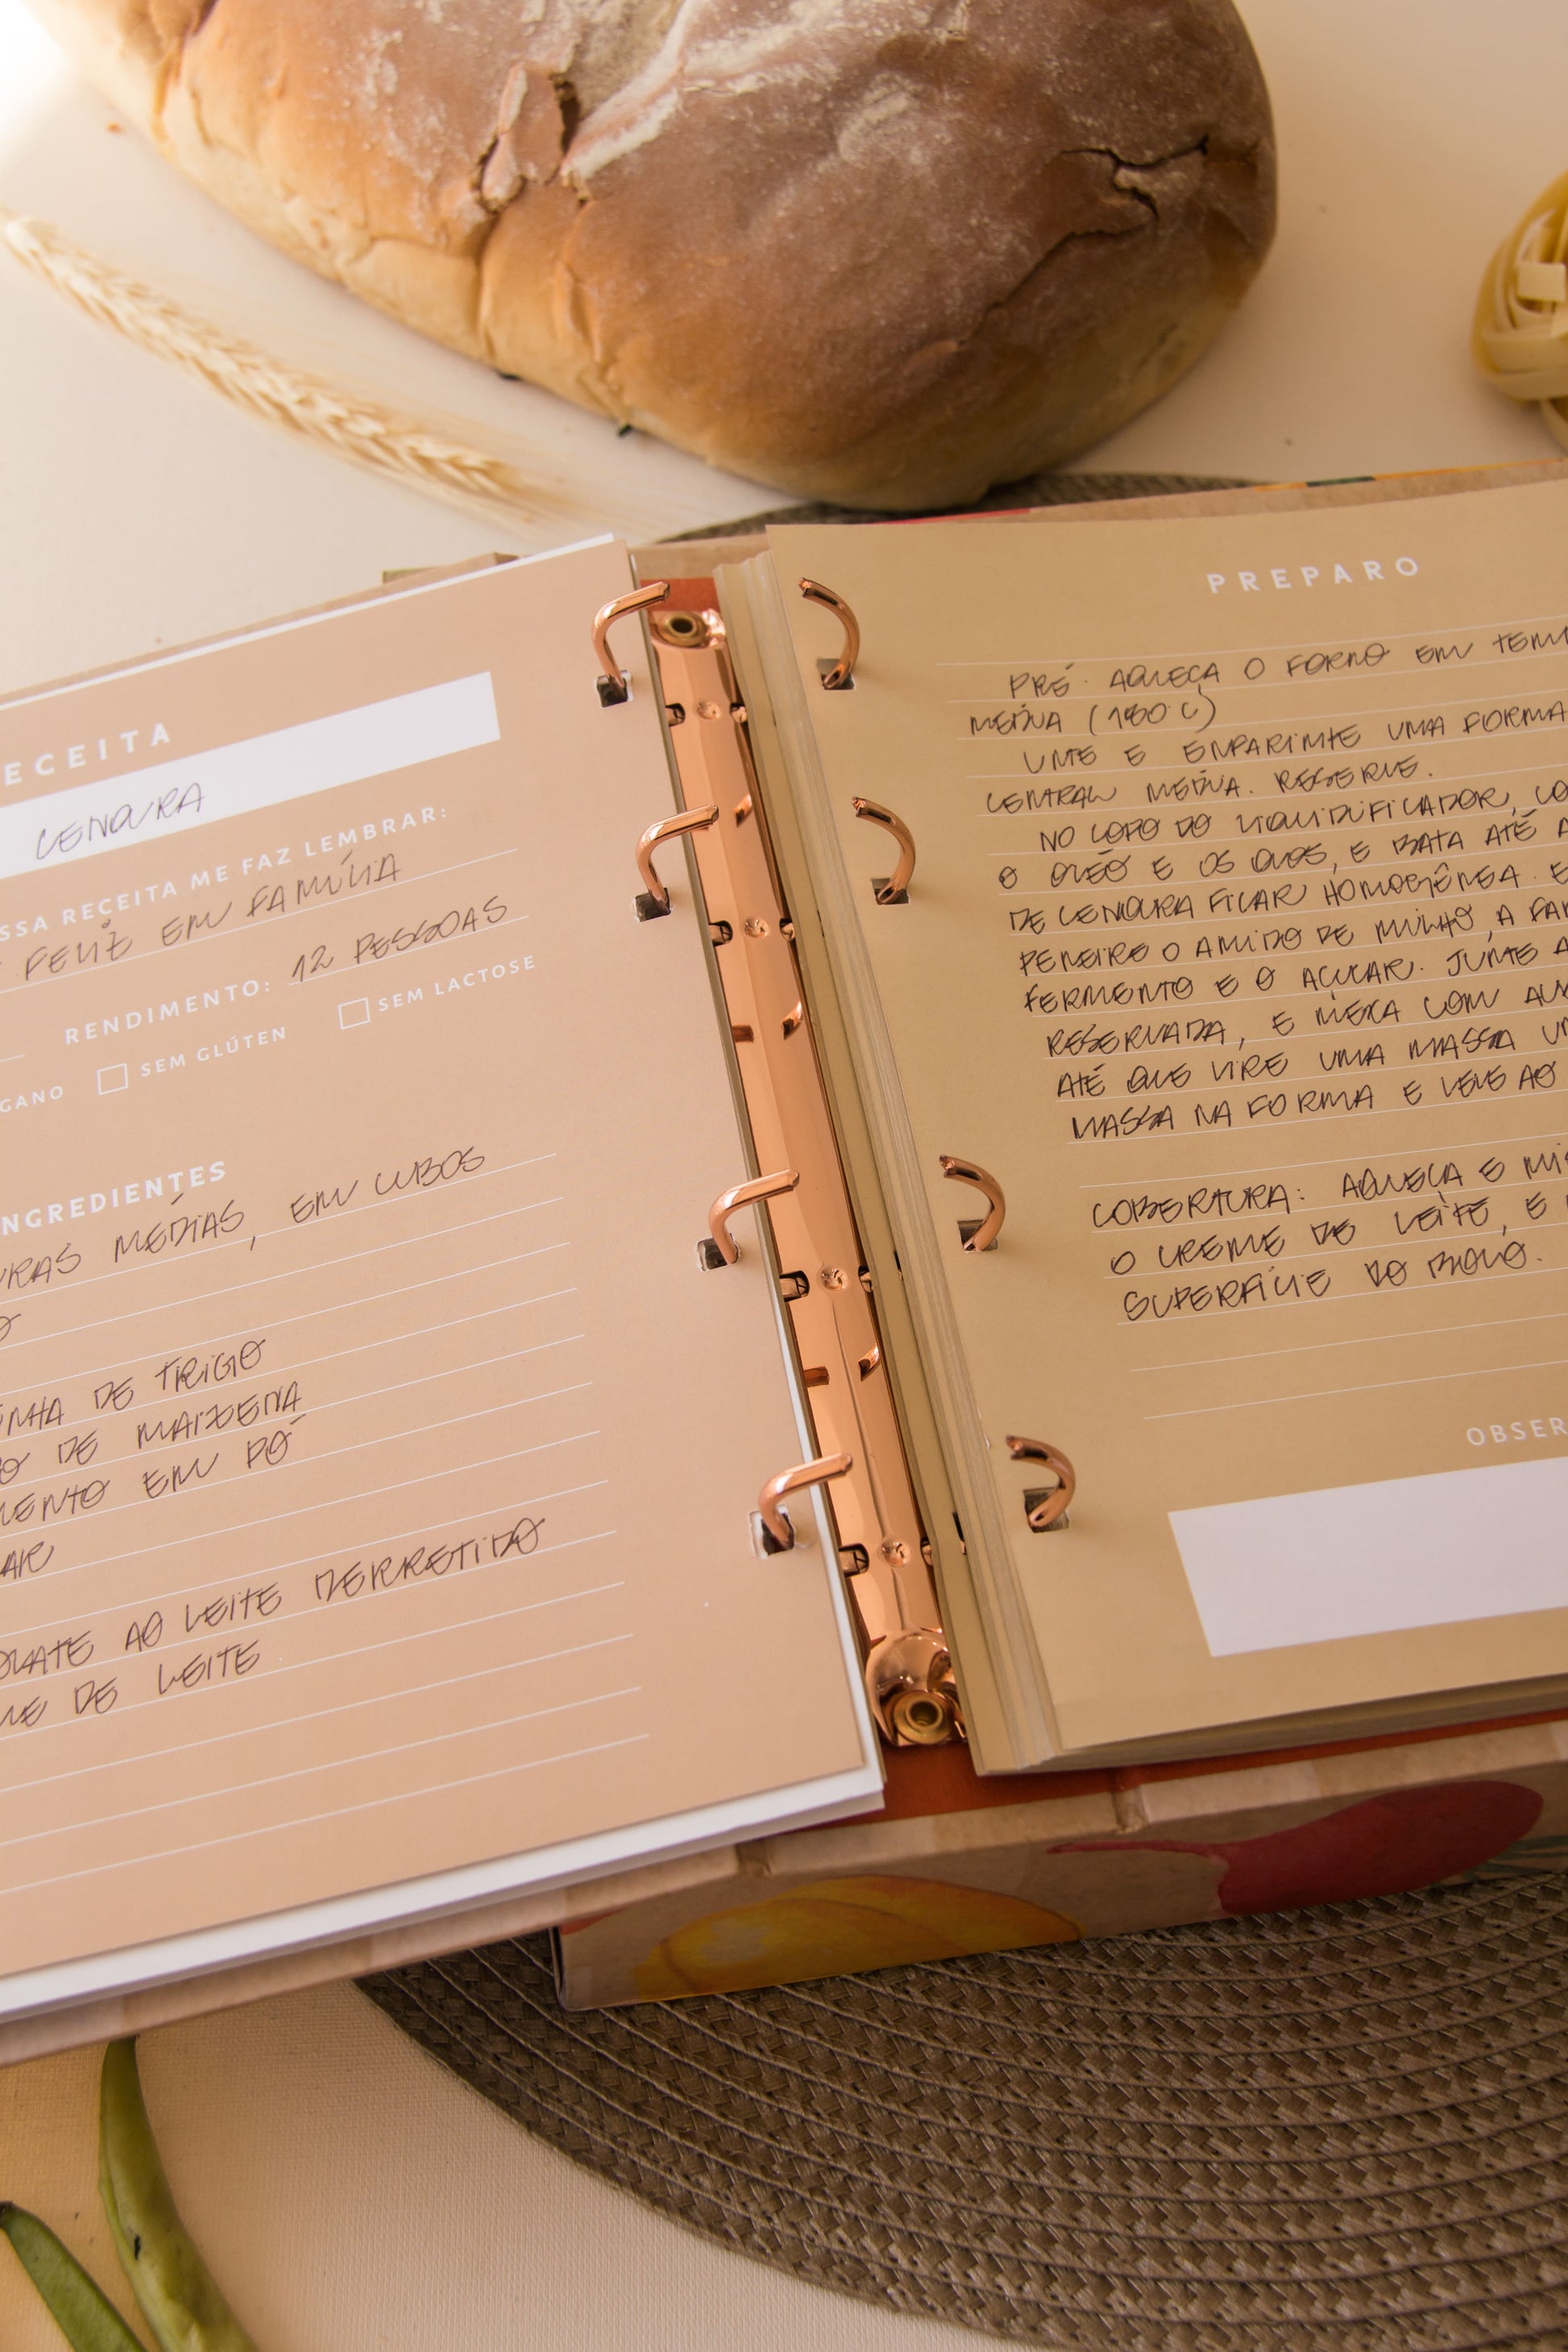 ECEITA
CENOURA
SSA RECEITA ME FAZ LEMBRAR:
FELIZ EM FAMÍLIA
RENDIMENTO: 12 PESSOAS
GANO SEM GLÚTEN SEM LACTOSE
NGREDIENTES
RAS MÉDIAS, EM CUBOS
O
NHA DE TRIGO
O DE MAIZENA
MENTO EM PÓ
AR
OLATE AO LEITE DERRETIDO
ME DE LEITE
PREPARO
PRÉ-AQUEÇA O FORNO EM TEM
MÉDIA (180°C)
UNTE E ENFARINHE UMA FORMA
CENTRAL MÉDIA. RESERVE.
NO COPO DO LIQUIDIFICADOR, CO
O ÓLEO E OS OVOS, E BATA ATÉ A
DE CENOURA FICAR HOMOGÊNEA. E
PENEIRE O AMIDO DE MILHO, A FA
FERMENTO E O AÇUCAR. JUNTE A
RESERVADA, E MEXA COM AU
ATÉ QUE VIRE UMA MASSA UN
MASSA NA FORMA E LEVE AO
COBERTURA: AQUEÇA E MIS
O CREME DE LEITE, E
SUPERFÍCIE DO BOLO.
OBSER